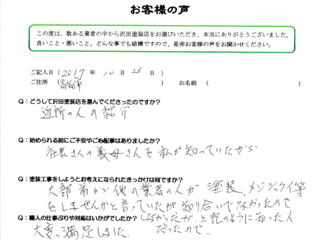 お客様の声
この度は、数ある業者の中から沢田塗装店をお選びいただき、本当にありがとうございました。
良いこと・悪いこと、どんな事でも結構ですので、是非お客様の声をお聞かせください。
ご記入日（2017年10月26日）
ご住所
お名前（　）
Q：どうして沢田塗装店を選んでくださったのですか？
近所の人の紹介
Q：始められる前にご不安やご心配事はありましたか？
店長さんの義母さんを私が知っていたから
Q：塗装工事をしようとお考えになられたきっかけは何ですか？
大部前から他の業者の人が塗装、メジ
をしませんかと言っていたが知り合いでなかったので
Q：職人の仕事ぶりや対応はいかがでしたか？
しなかったが
知った人
だったので
大変、満足しました